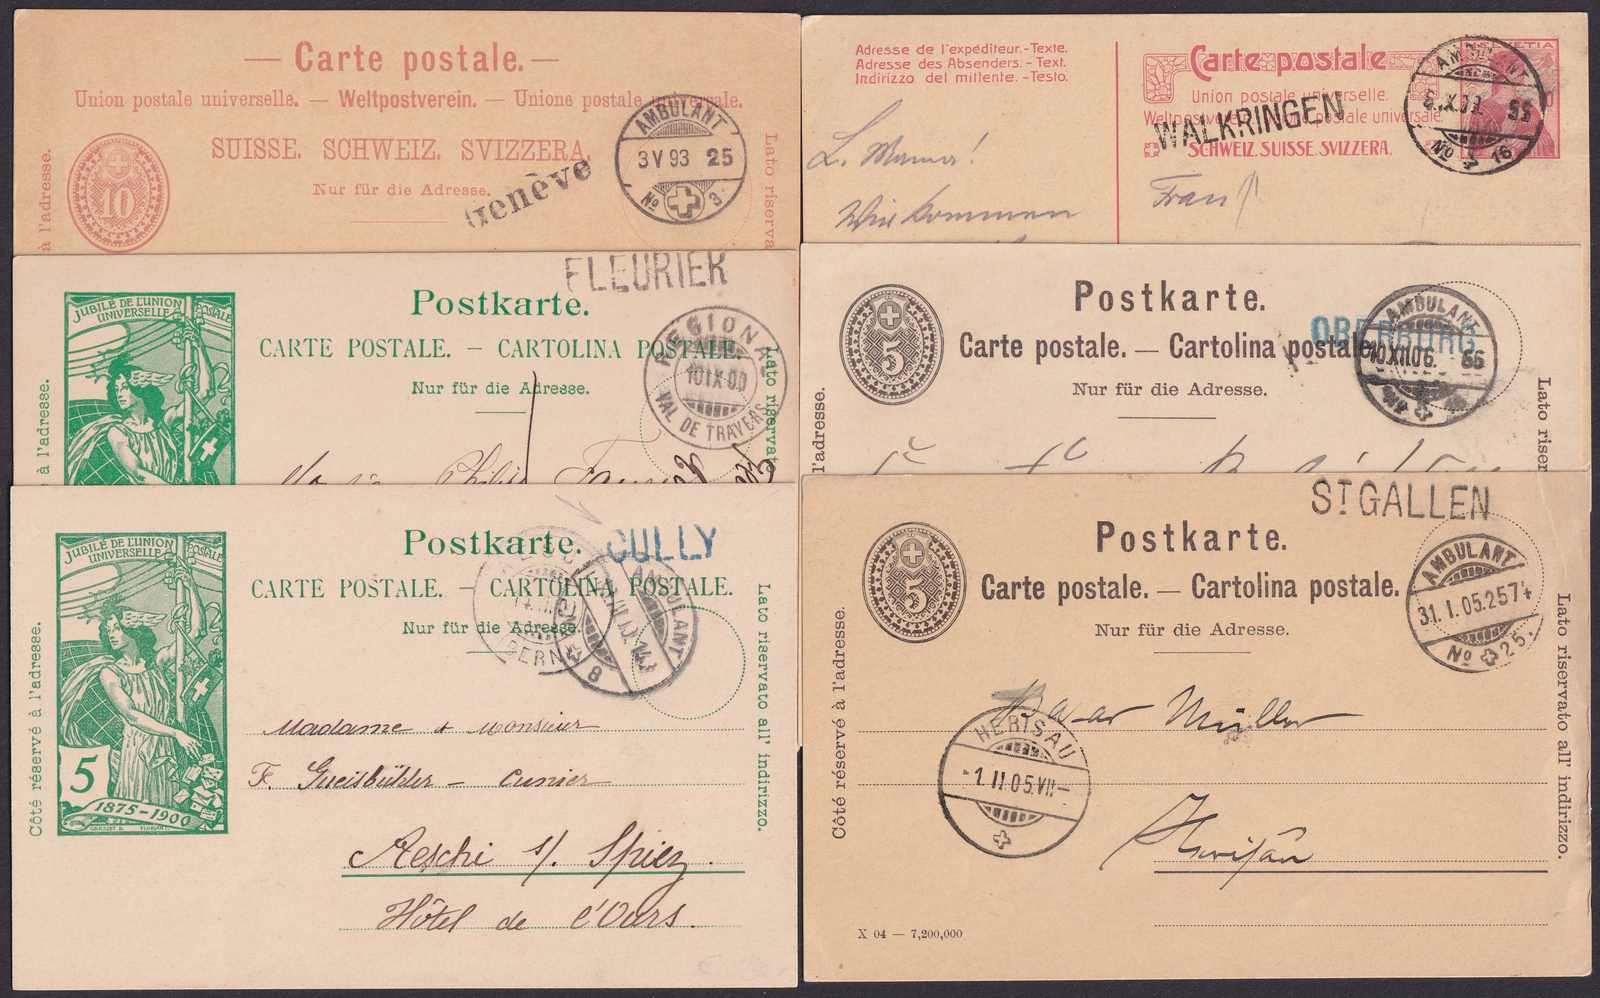 — Carte postale. —
Union postale universelle. — Weltpostverein. — Unione postale universale.
SUISSE. SCHWEIZ. SVIZZERA.
Nur für die Adresse.
10
à l'adresse.
Lato riserva
Genève
AMBULANT
3 V 93 25
No 3.
Adresse de l'expéditeur.-Texte.
Adresse des Absenders. - Text.
Indirizzo del mittente. -Testo.
Carte postale
Union postale universelle.
Weltpostverein. Unione postale universale.
SCHWEIZ. SUISSE. SVIZZERA.
HELVETIA
WALKRINGEN
AMBULANT
No 16
Wir kommen
Frau
FLEURIER
JUBILÉ DE L'UNION
UNIVERSELLE POSTALE
Postkarte.
CARTE POSTALE. — CARTOLINA POSTALE.
Nur für die Adresse.
à l'adresse.
Lato riservato
REGIONAL
10 IX 00
VAL DE TRAVERS
Postkarte.
Carte postale. — Cartolina postale.
Nur für die Adresse.
5
l'adresse.
Lato riser
OBERBURG
AMBULANT
10 XII 06.
JUBILÉ DE L'UNION
UNIVERSELLE POSTALE
5
1875-1900
Postkarte.
CARTE POSTALE. — CARTOLINA POSTALE.
Nur für die Adresse.
Côté réservé à l'adresse.
Lato riservato all' indirizzo.
CULLY
AMBULANT
8
BERN
Madame & Monsieur
Aeschi s/ Spiez.
Hôtel de l'Ours
ST GALLEN
Postkarte.
Carte postale. — Cartolina postale.
Nur für die Adresse.
5
Côté réservé à l'adresse.
Lato riservato all' indirizzo.
AMBULANT
31. I. 05. 2574
No 25.
Müller
HERISAU
1. II. 05. VII
Herisau
X 04 — 7,200,000